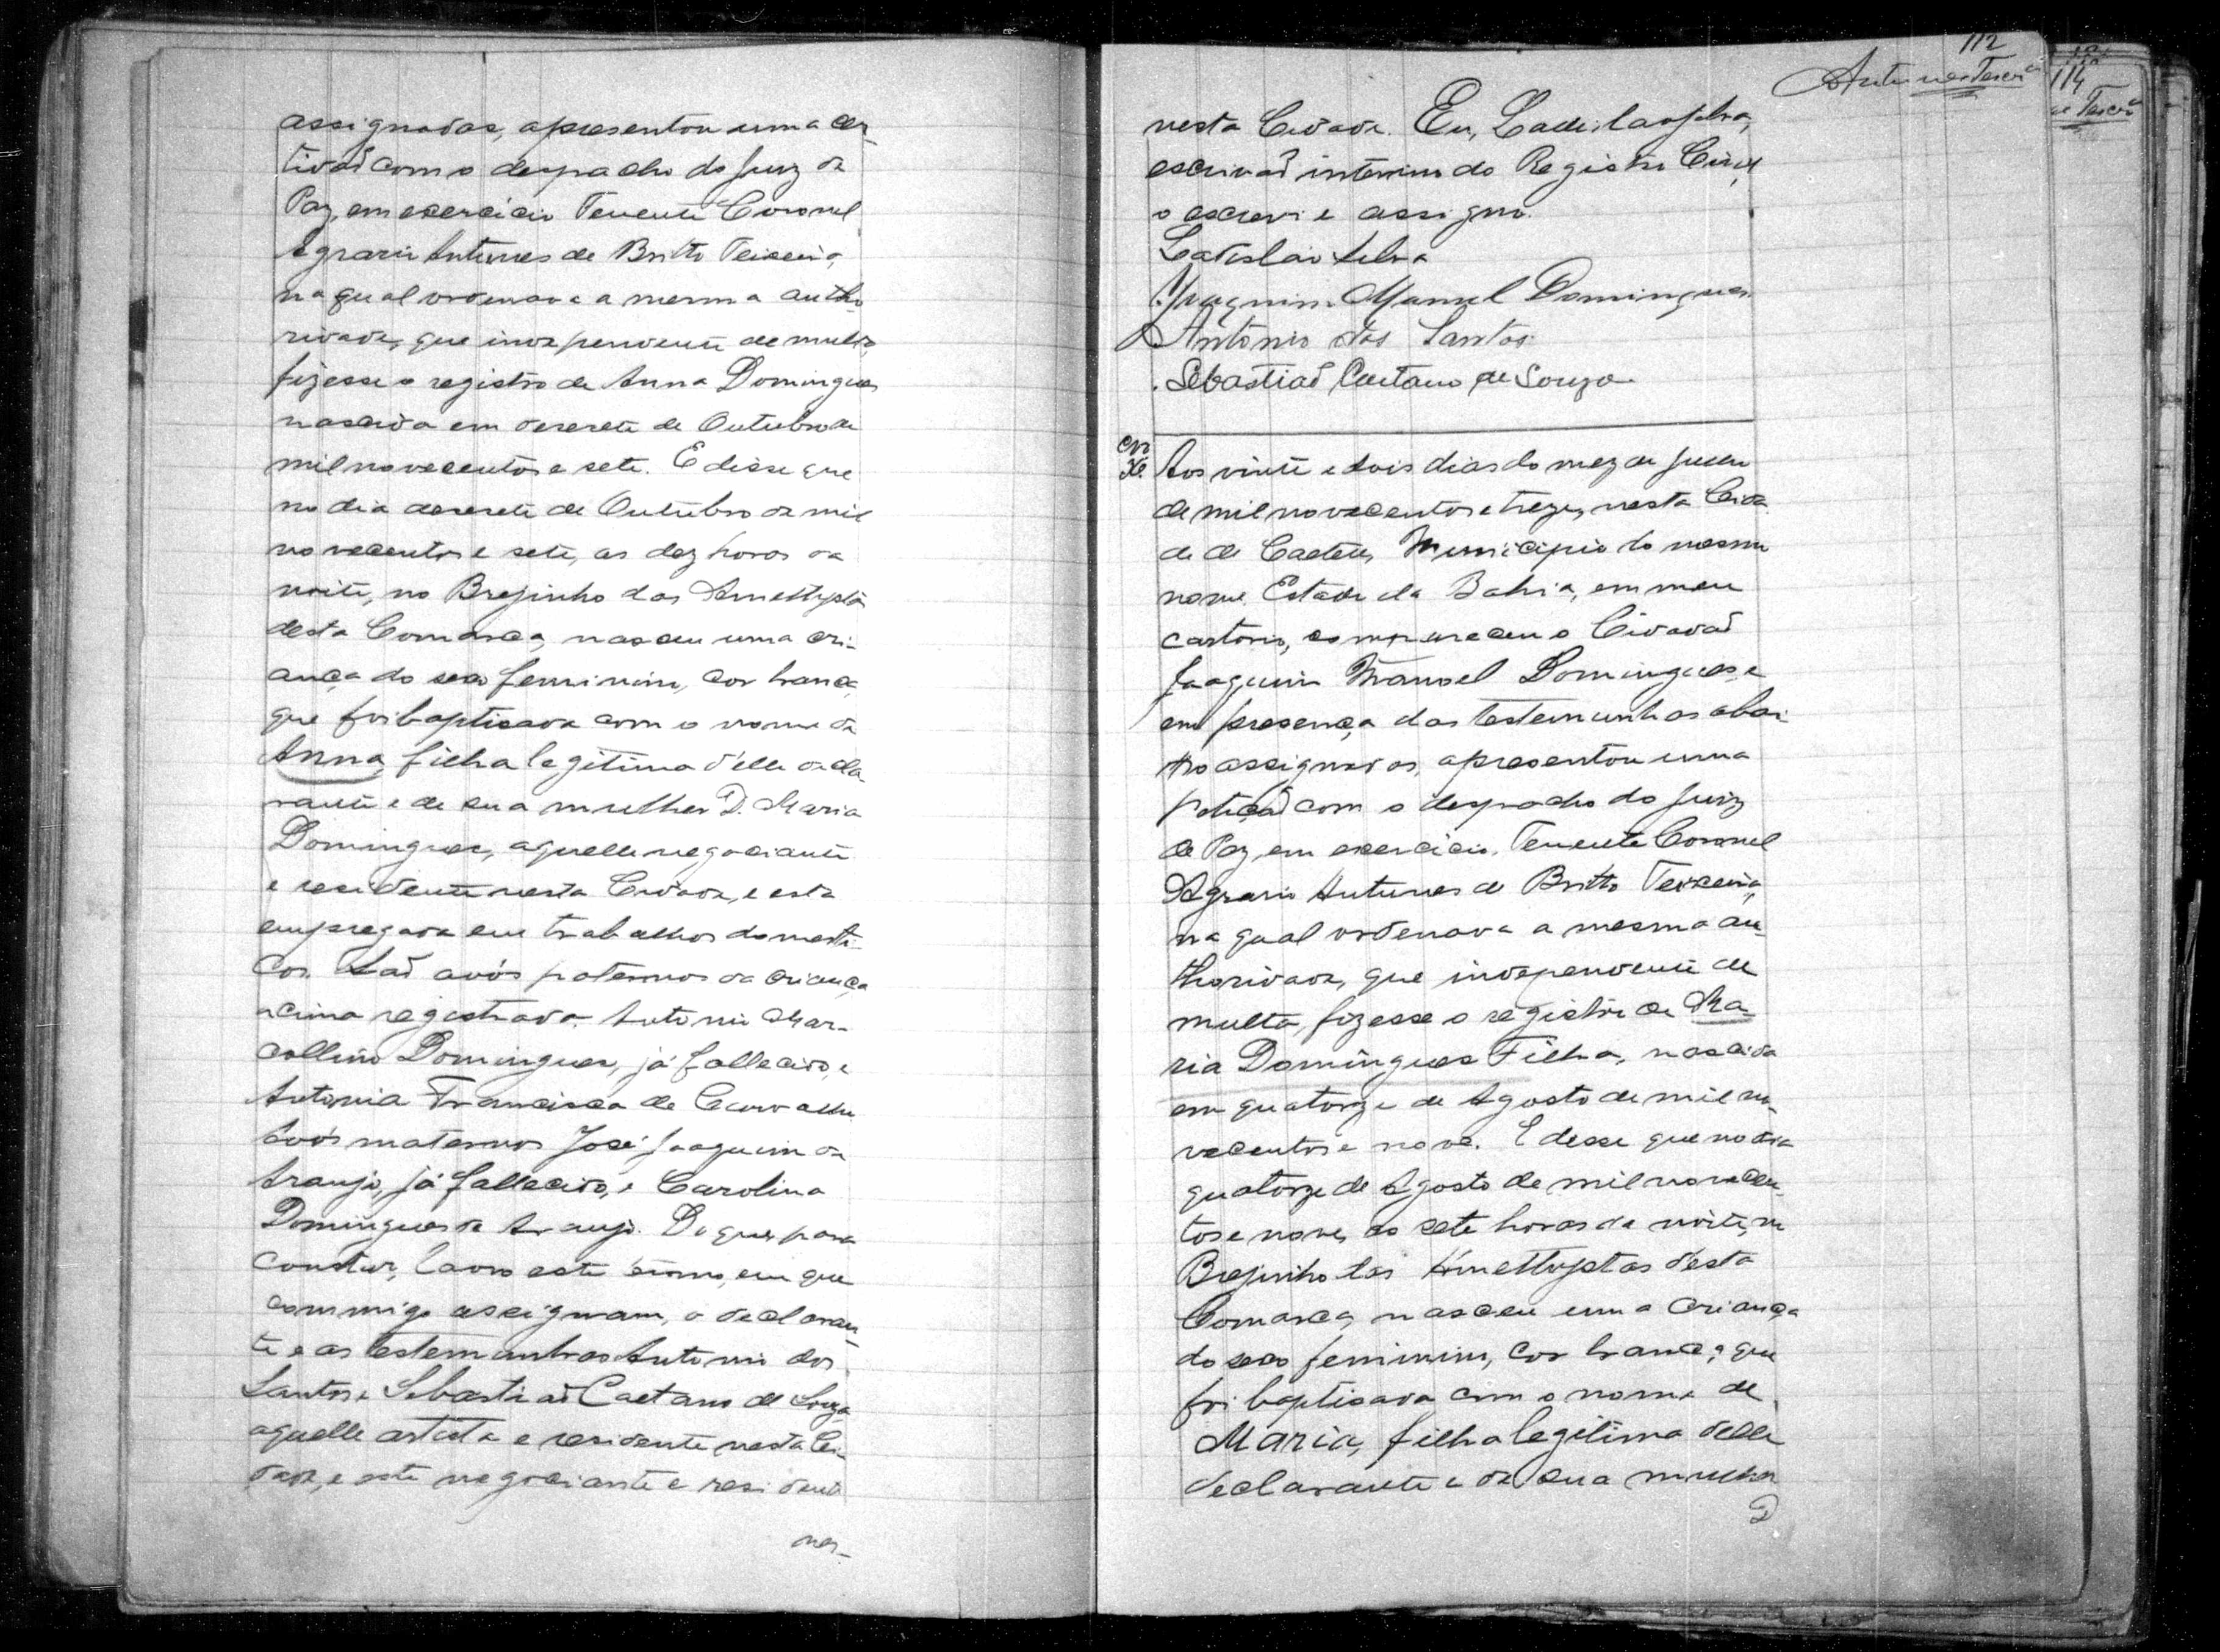 assignadas, apresentou uma cer-
tidaõ com o despacho do Juiz de
Paz, em exercicio Tenente Coronel
Agrario Antunes de Britto Teixeira,
na qual ordenava a mesma autho-
ridade, que independente de multa,
fizesse o registro de Anna Domingues
nascida em desesete de Outubro de
mil novecentos e sete. E disse que
no dia desesete de Outubro de mil
novecentos e sete, as dez horas da
noite, no Brejinho das Amethystas
desta Comarca, nasceu uma cri-
ança do sexo feminino, cor branca,
que foi baptisada com o nome de
Anna, filha legitima d'elle decla-
rante e de sua mulher D. Maria
Domingues, aquelle negociante
e residente nesta Cidade, e esta
empregada em trabalhos domesti-
cos. Saõ avós paternos da criança
acima registrada Antonio Mar-
collino Domingues, já fallecido, e
Antonia Francisca de Carvalho
Avós maternos José Joaquim de
Araujo, já fallecido, e Carolina
Domingues de Araujo. Do que, para
constar, lavro este termo, em que
commigo assignam, o declaran-
te e as testemunhas Antonio dos
Santos e Sebastiaõ Caetano de Souza
aquelle artista e residente nesta Ci-
dade, e este negociante e residente
nes-
112
Antunes Teixrª
114
Teixrª
nesta Cidade. Eu, Ladislao Silva,
escrivaõ interino do Registro Civil,
o escrevi e assigno.
Ladislao Silva
Joaquim Manoel Domingues
Antonio dos Santos
Sebastiaõ Caetano de Souza
Aos vinte e dois dias do mez de Julho
de mil novecentos e treze, nesta Cida-
de de Caeteté, Municipio do mesmo
nome, Estado da Bahia, em meu
cartorio, compareceu o Cidadaõ
Joaquim Manoel Domingues, e
em presença das testemunhas abai-
xo assignadas, apresentou uma
petiçaõ com o despacho do Juiz
de Paz, em exercicio, Tenente Coronel
Agrario Antunes de Britto Teixeira,
na qual ordenava a mesma au-
thoridade, que independente de
multa, fizesse o registro de Ma-
ria Domingues Filha, nascida
em quatorze de Agosto de mil no-
vecentos e nove. E disse que no dia
quatorze de Agosto de mil novecen-
tos e nove, as sete horas da noite, no
Brejinho das Amethystas desta
Comarca, nasceu uma criança
do sexo feminino, cor branca, que
foi baptisada com o nome de
Maria, filha legitima delle
declarante e de sua mulher
D